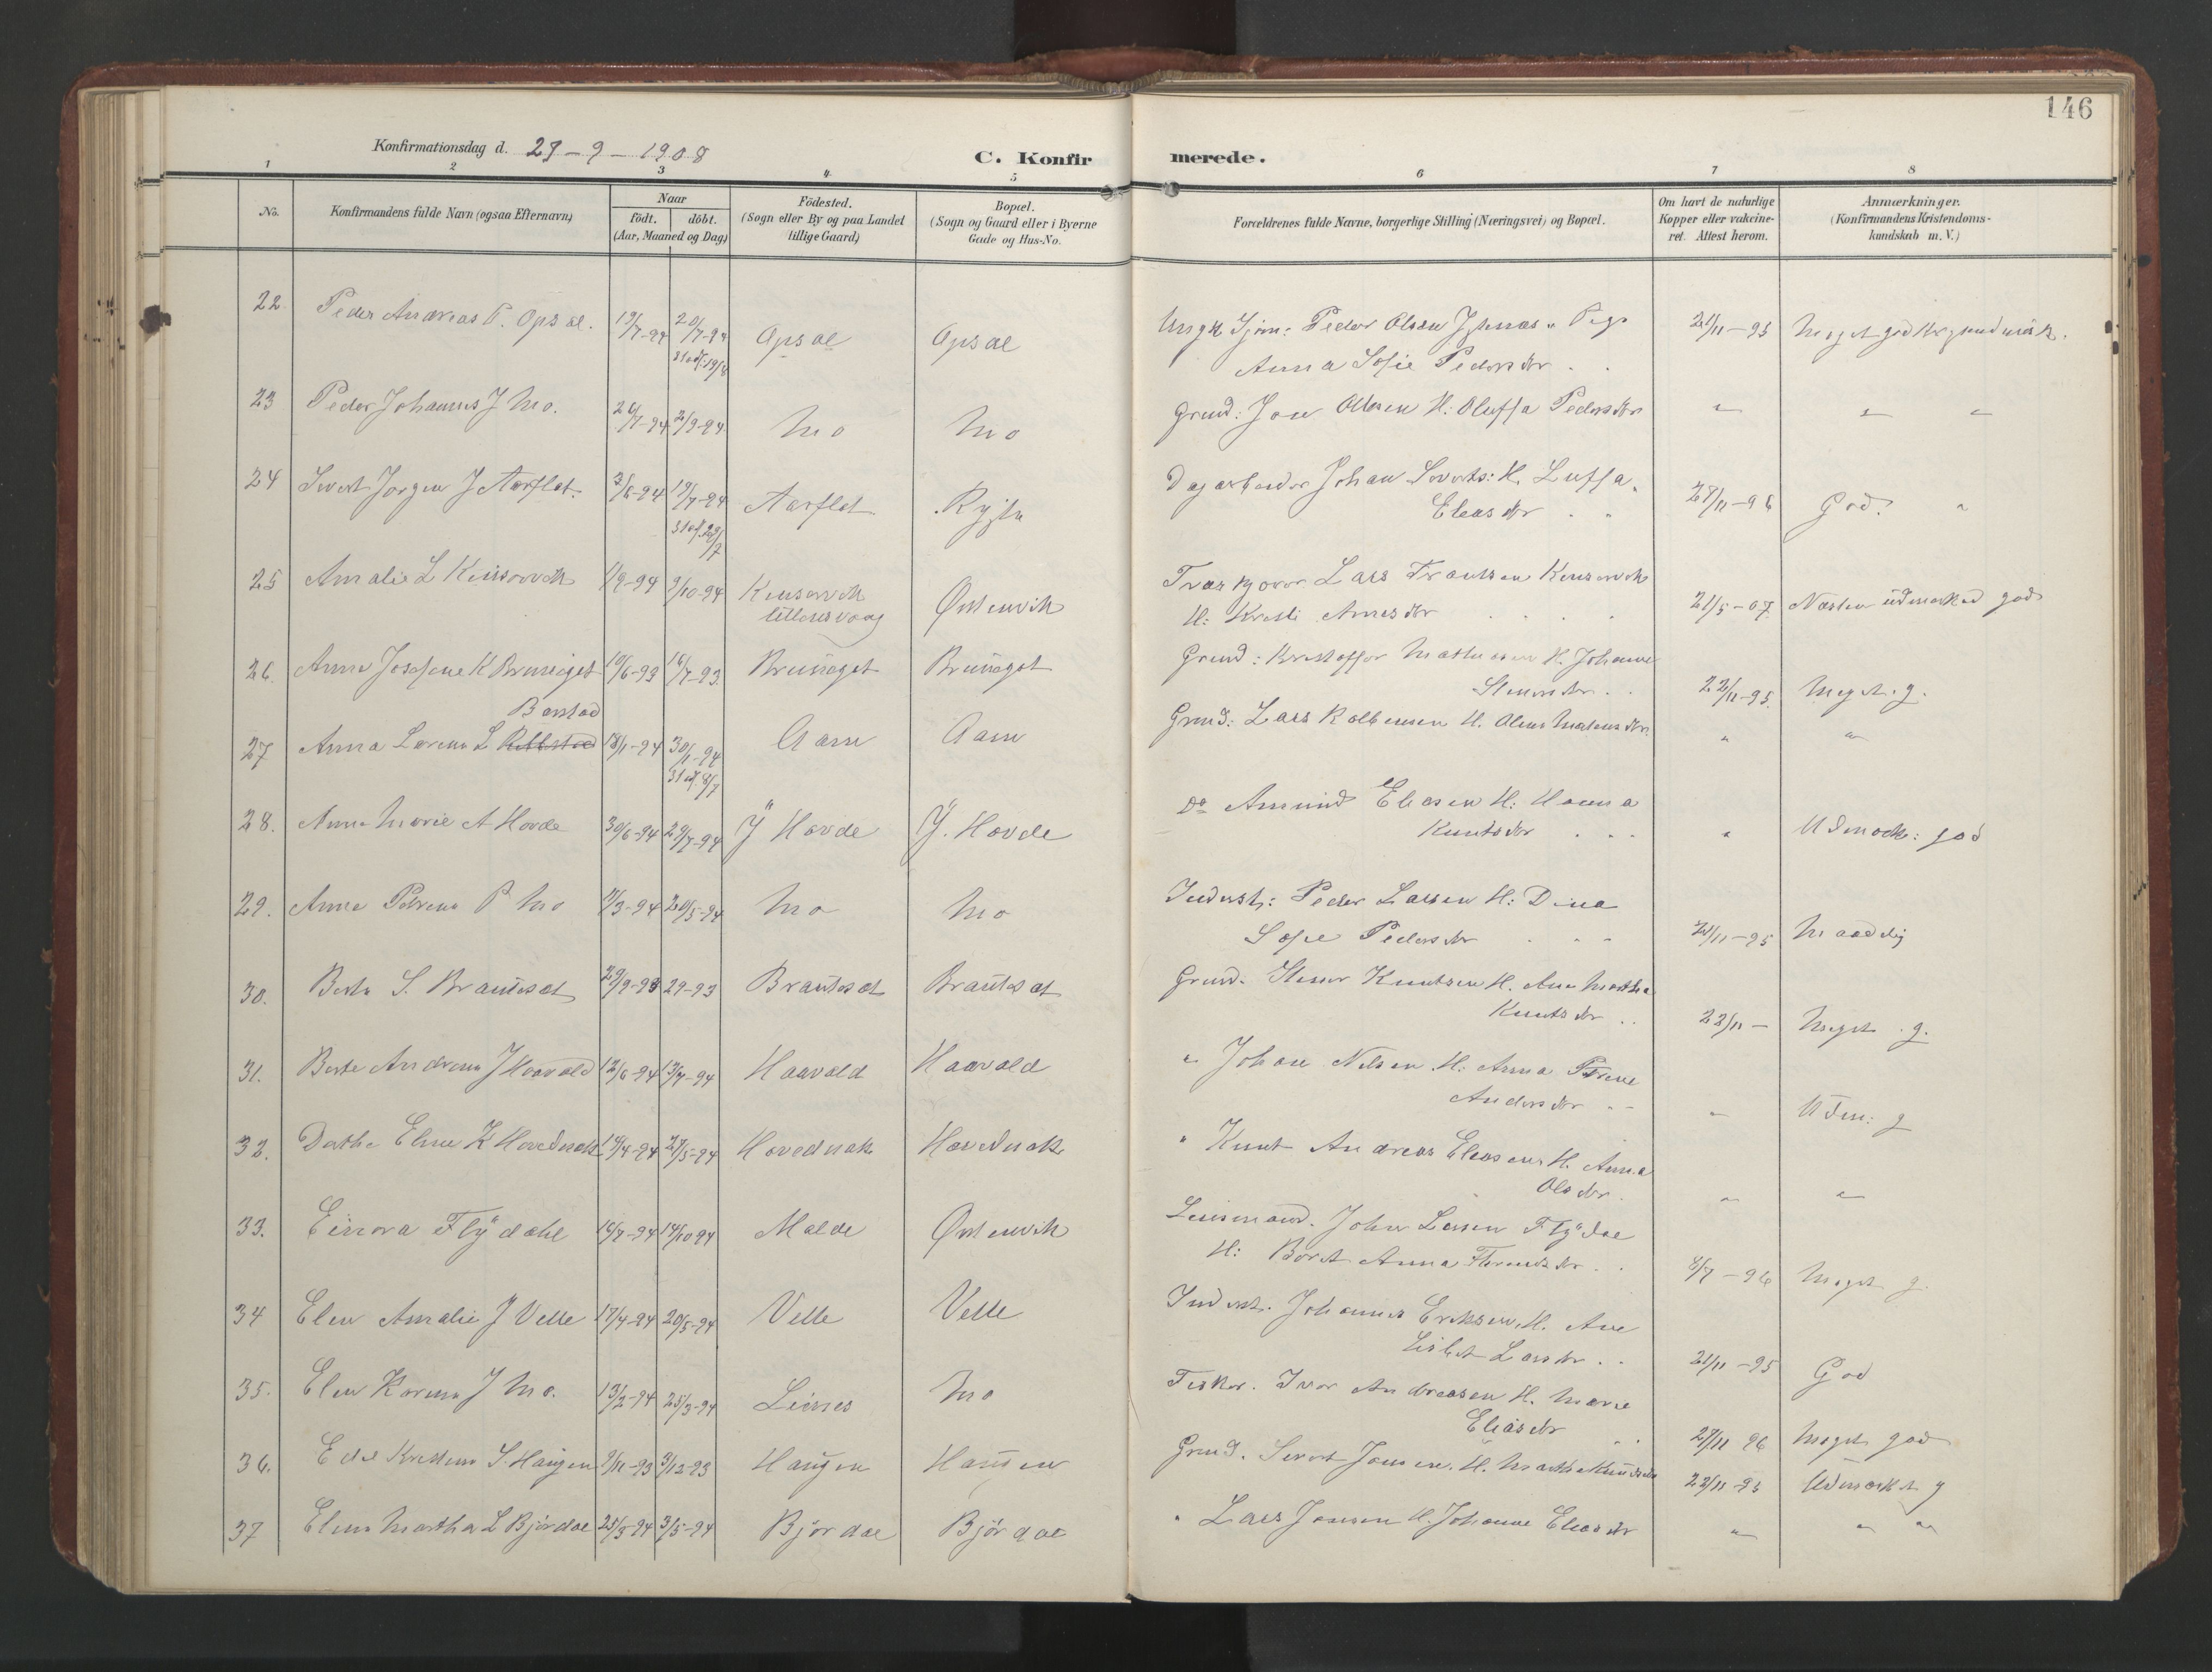 146
Konfirmationsdag d. 29-9-1908
C. Konfirmerede.
1 2 3 4 5 6 7 8
No.
Konfirmandens fulde Navn (ogsaa Efternavn)
Naar
født. døbt.
(Aar, Maaned og Dag)
Fødested.
(Sogn eller By og paa Landet
tillige Gaard)
Bopæl.
(Sogn og Gaard eller i Byerne
Gade og Hus-No.
Forældrenes fulde Navne, borgerlige Stilling (Næringsvei) og Bopæl.
Om havt de naturlige
Kopper eller vakcine-
ret. Attest herom.
Anmærkninger.
(Konfirmandens Kristendoms-
kundskab m. V.)
22. Peder Andreas P. Opsal. 19/7-94 20/7-94 Opsal Opsal Ungk. Peder Olsen Pige 21/11-95 Meget god
Stadf. 19/8 Anna Sofie Pedersdtr
23 Peder Johannes J Mo. 26/7-94 2/9-94 Mo Mo Grund: Olsen H: Oluffa Pedersdtr " " "
24 Sivert Jørgen J Aarflot. 3/6-94 19/7-94 Aarflot Dagarbeider Johan Siverts: H. Luffa
Stadf. 22/7 Eliasdtr 27/11-96 God. "
25 Amalie L 1/9-94 9/10-94 Ørstenvik Lars Frantsen
H: Kristi Arnesdtr 21/5-07 Næsten udmærked god
26. Anna Josefine K Bruneget 10/6-93 16/7-93 Bruneget Bruneget Grund: Kristoffer Mathiasen H. Johanne
22/11-95. Meget. g.
Barstad
27 Anna Lovena L 18/1-94 30/1-94 Aam Aam Grund: Lars H. " "
Stadf. 8/7
28. Anna Marie A Hovde 30/6-94 29/7-94 Y Hovde Y. Hovde Do Amund Eliasen H: Hanna
Knutsdtr " Udmærk: god
29. Anne Petrine P Mo 11/3-94 20/5-94 Mo Mo Inderst: Peder Larsen H: Dina
Sofie Pedersdtr 21/11-95 Maadelig
30. Berte S. Brauteset 29-93 Brauteset Brauteset Grund: Steinar Knutsen H. Ane Marthe
Knutsdtr 22/11- Meget g.
31. Berte Andrea J Haavold 12/6-94 13/7-94 Haavold Haavold " Johan Nilsen H: Anna
Andersdtr " Udm: g
32. Dorthe Eline K Hovednak 14/4-94 27/5-94 Hovednak Hovednak " Knut Andreas Eliasen H. Anna
Olsdtr. " "
33. Einora Flÿdahl 16/7-94 14/10 94 Molde Ørstenvik Lensmand. John Larsen Flÿdal
H: Berit Anna 8/7-96 Meget g.
34 Elen Amalie J Velle 17/4-94 20/5-94 Velle Velle Inderst. Johannes Eriksen, H. Ane
Lisbet Larsdtr 21/11-95 God
35. Elen Karina J Mo. 13/2-94 25/3-94 Mo Fisker. Ivar Andreasen H. Marie
Eliasdtr 27/11 96 Meget god
36. Kristine S. Haugen 9/11-93 3/12-93 Haugen Haugen Grund. Sivert Jonsen. H. Marthe 22/11-95 Udmærket g
37 Eline Martha L Bjørdal 25/3-94 3/5-94 Bjørdal Bjørdal " Lars Jonsen H. Johanne Eliasdtr " " "